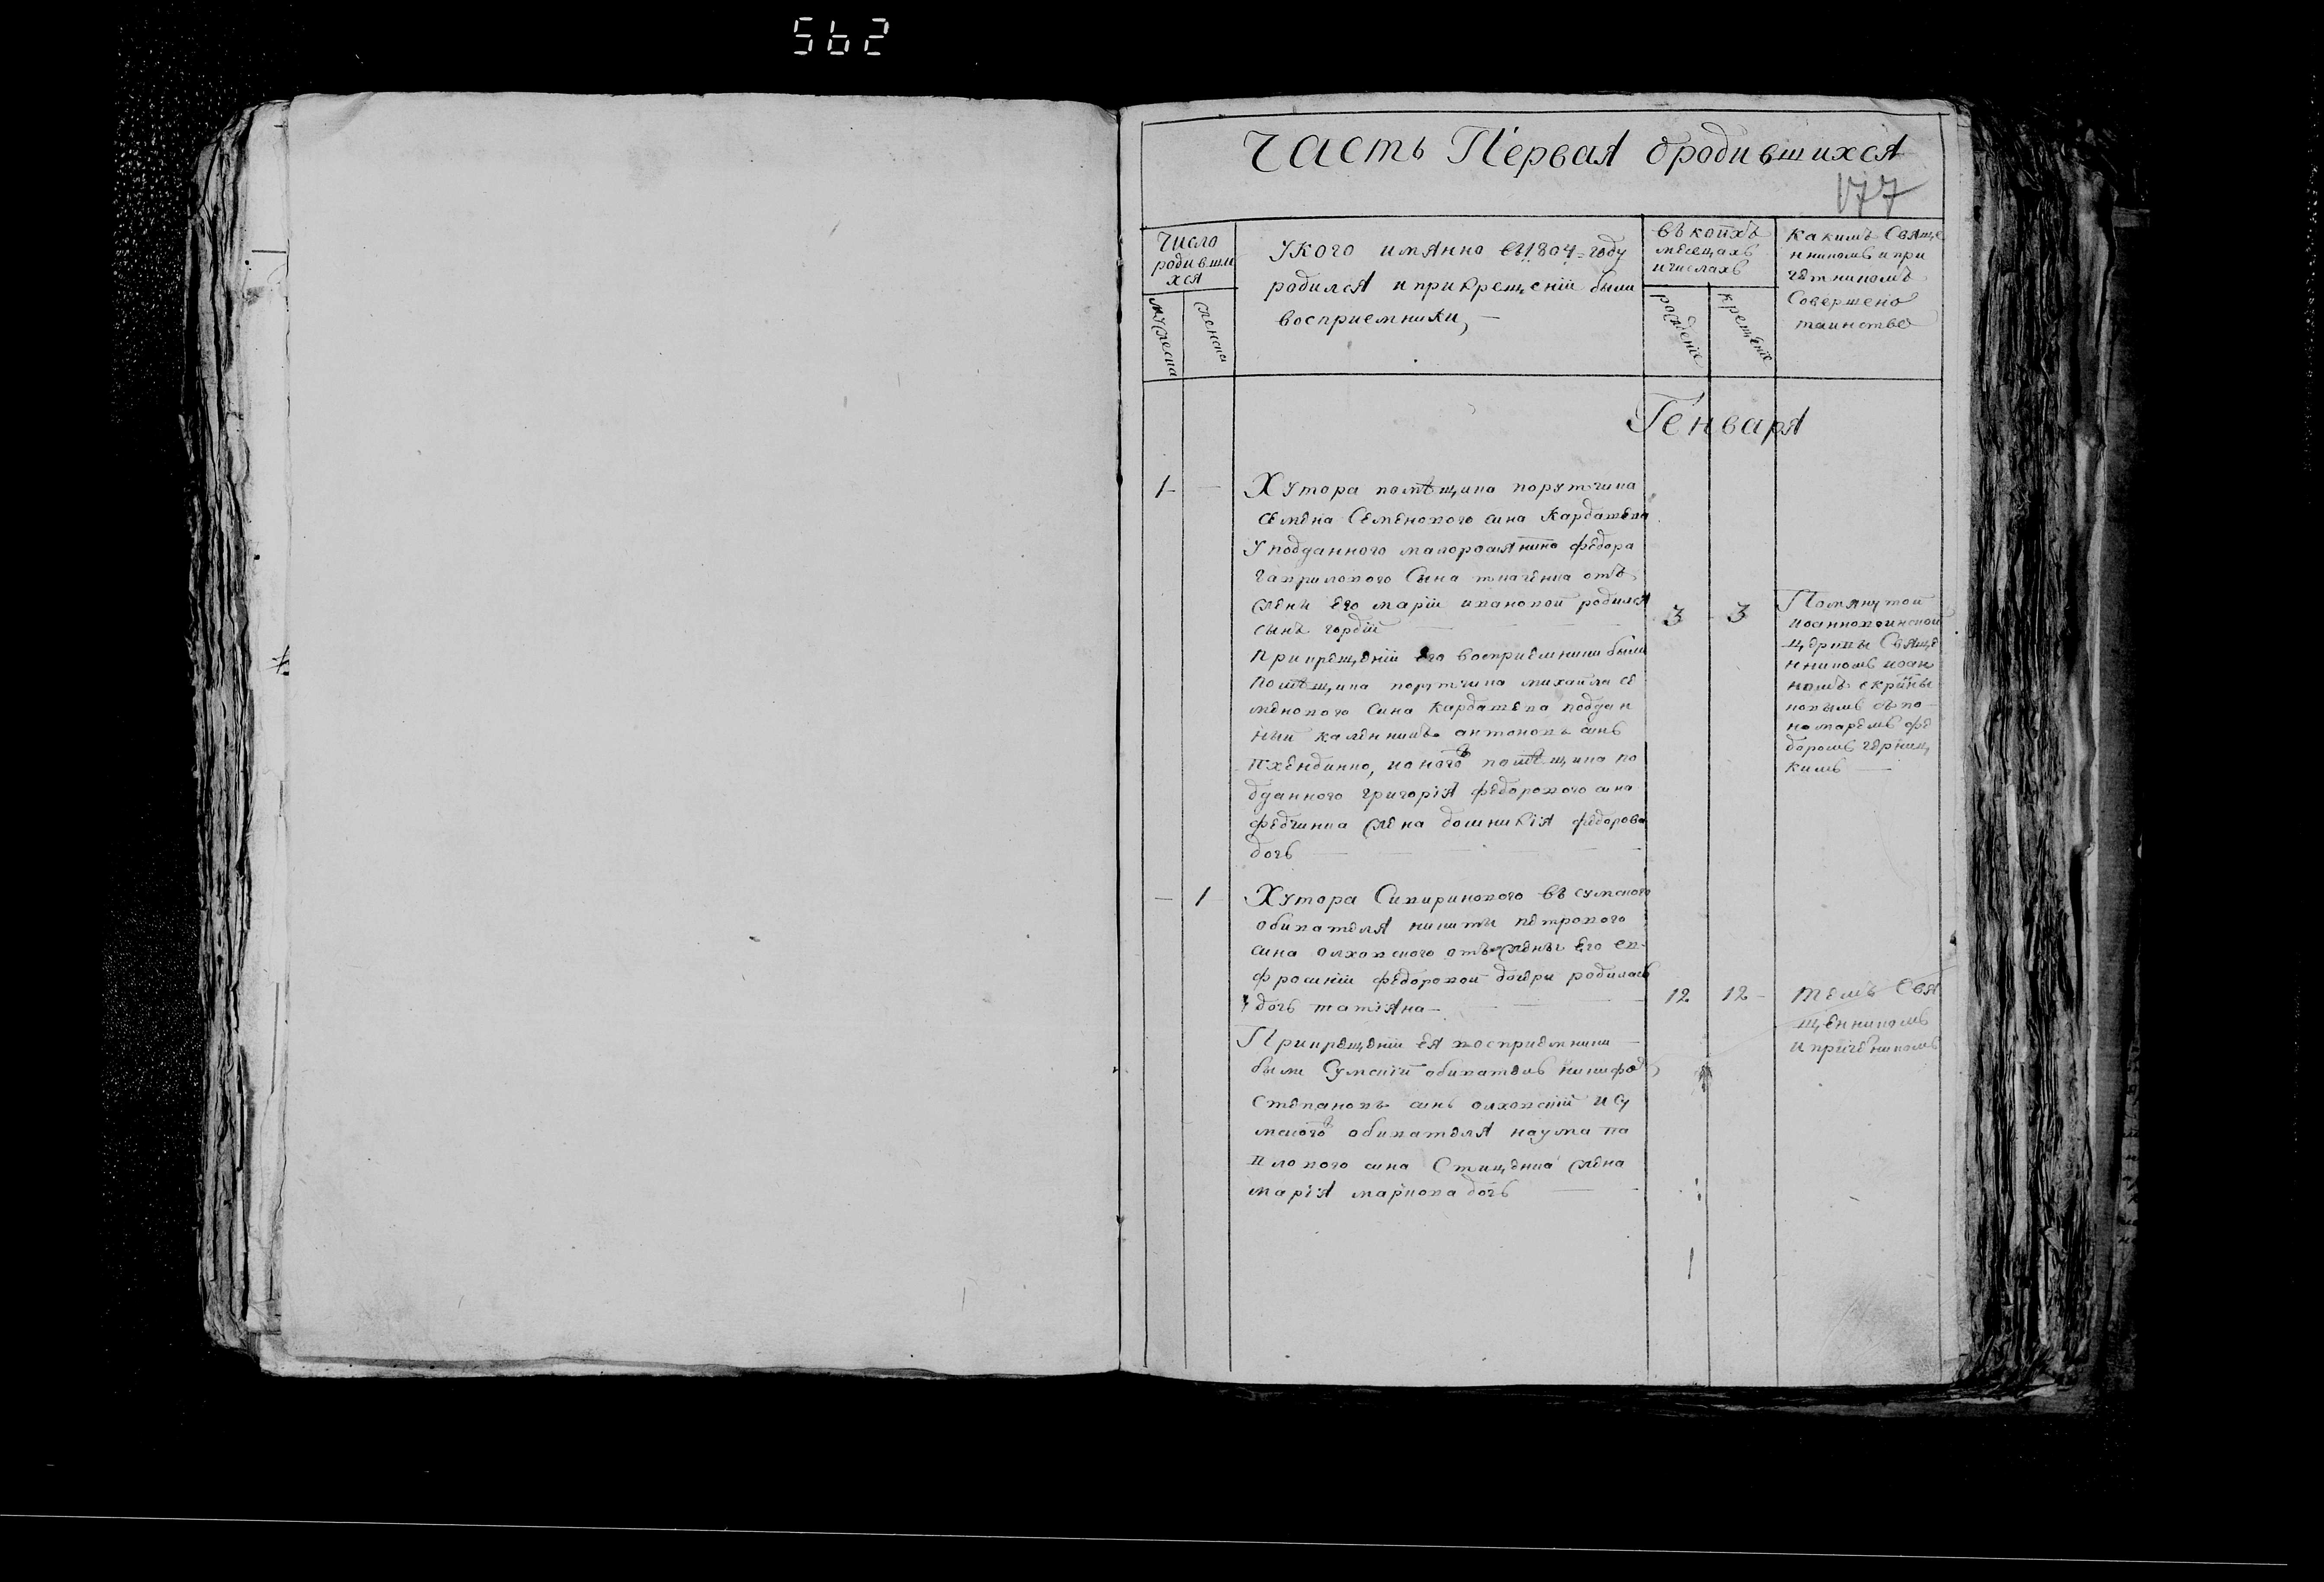 562
Часть Первая о родившихся
177
Число
родивши
хся
мужеска
женска
У кого имянно въ 1804 = году
родился и при крещении были
восприемники,
въ коихъ
месецахъ
и числахъ
рождение
крещение
Какимъ Свяще
нникомъ и при
четникомъ
Совершено
таинство
Генваря
1 - Хутора помѣщика порутчика
Семена Семенового сина Кардашева
у подданного малоросиянина федора
гаврилового Сына ткаченка отъ
жени его марiи ивановой родился
сынъ гордiй
При крещенiи его восприемники были
помѣщика порутчика михайла се
менового сина Кардашева поддан
ный калѣнникъ антоновъ синъ
и оного помѣщика по
дданного григорiя федорового сина
федченка жена домникiя федорова
дочь
3 3
Помянутой
иоанновоинской
церквы Свяще
нникомъ иоан
номъ
съ по
номаремъ фе
доромъ черниц
кимъ
- 1 Хутора Сиви́ринового въ сумского
обивателя никиты петрового
сина олховского отъ жены его ев
фросинiи федоровой дочери родилась
дочь татiяна
12 12 -
темъ Свя
щенникомъ
и причетникомъ
При крещенiи ея восприемники
были Сумскiй обиватель никифор
Степановъ синъ олховскiй и су
мского обивателя наума па
влового сина Стиценка жена
марiя маркова дочь